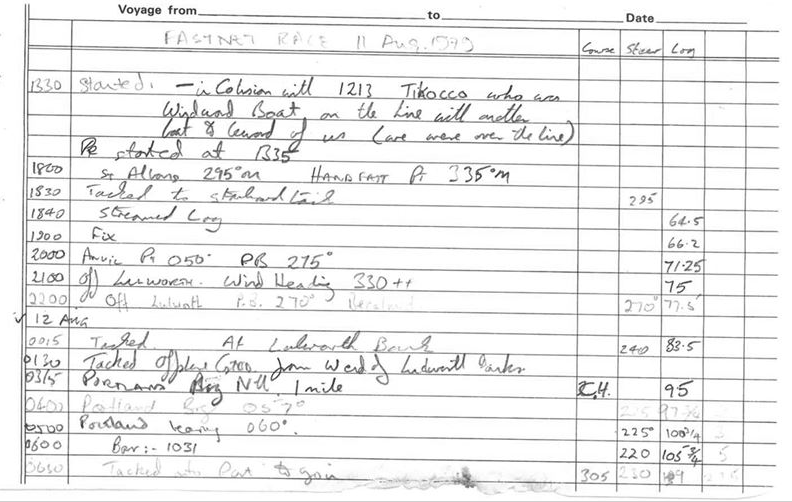 Voyage from to Date
FASTNET RACE 11 Aug. Course Steer Log
1330 Started. — in Colision with 1213 Tikocco who was
Windward Boat on the line with another
boat to leward of us (we were over the line)
Re started at 1335
1800 St Albans 295°m HANDFAST Pt 335°M
1830 Tacked to starboard tack 295
1840 Streamed Log 64.5
1900 Fix 66.2
2000 Anvil Pt 050° PB 275° 71.25
2100 Off LULWORTH. Wind Heading 330++ 75
2200 Off Lulworth P.B. 270° 270° 77.5
✓ 12 Aug
0015 Tacked. At Lulworth Bank 240 83.5
0130 Tacked from W end of Lulworth banks
0315 PORTLAND Brg NLL 1 mile C.H. 95
0400 Portland Brg 057° 225 97
0500 Portland bearing 060°. 225° 100 1/4 3
0600 Bar:- 1031 220 105 3/4 5
0630 Tacked onto Port to gain 305 230